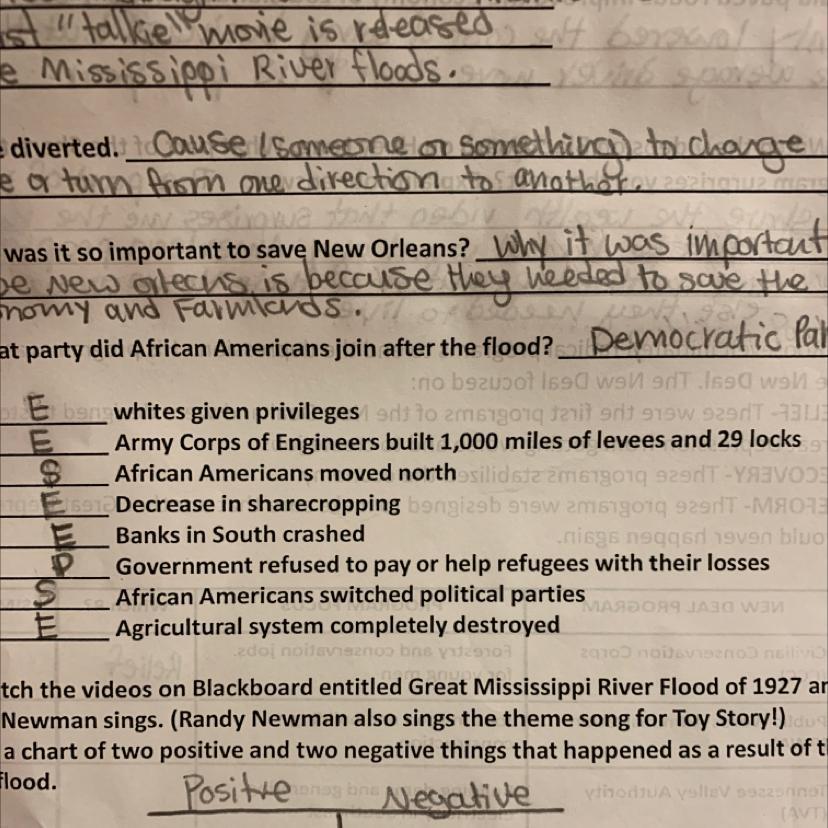 st "talkie" movie is released
e Mississippi River floods.
e diverted. Cause (someone or something) to change
e or turn from one direction to another.
was it so important to save New Orleans? Why it was important
be New orleans is because they needed to save the
nomy and Farmlands.
at party did African Americans join after the flood? Democratic Par
E whites given privileges
E Army Corps of Engineers built 1,000 miles of levees and 29 locks
S African Americans moved north
E Decrease in sharecropping
E Banks in South crashed
P Government refused to pay or help refugees with their losses
S African Americans switched political parties
E Agricultural system completely destroyed
tch the videos on Blackboard entitled Great Mississippi River Flood of 1927 an
Newman sings. (Randy Newman also sings the theme song for Toy Story!)
a chart of two positive and two negative things that happened as a result of t
flood.
Positive Negative